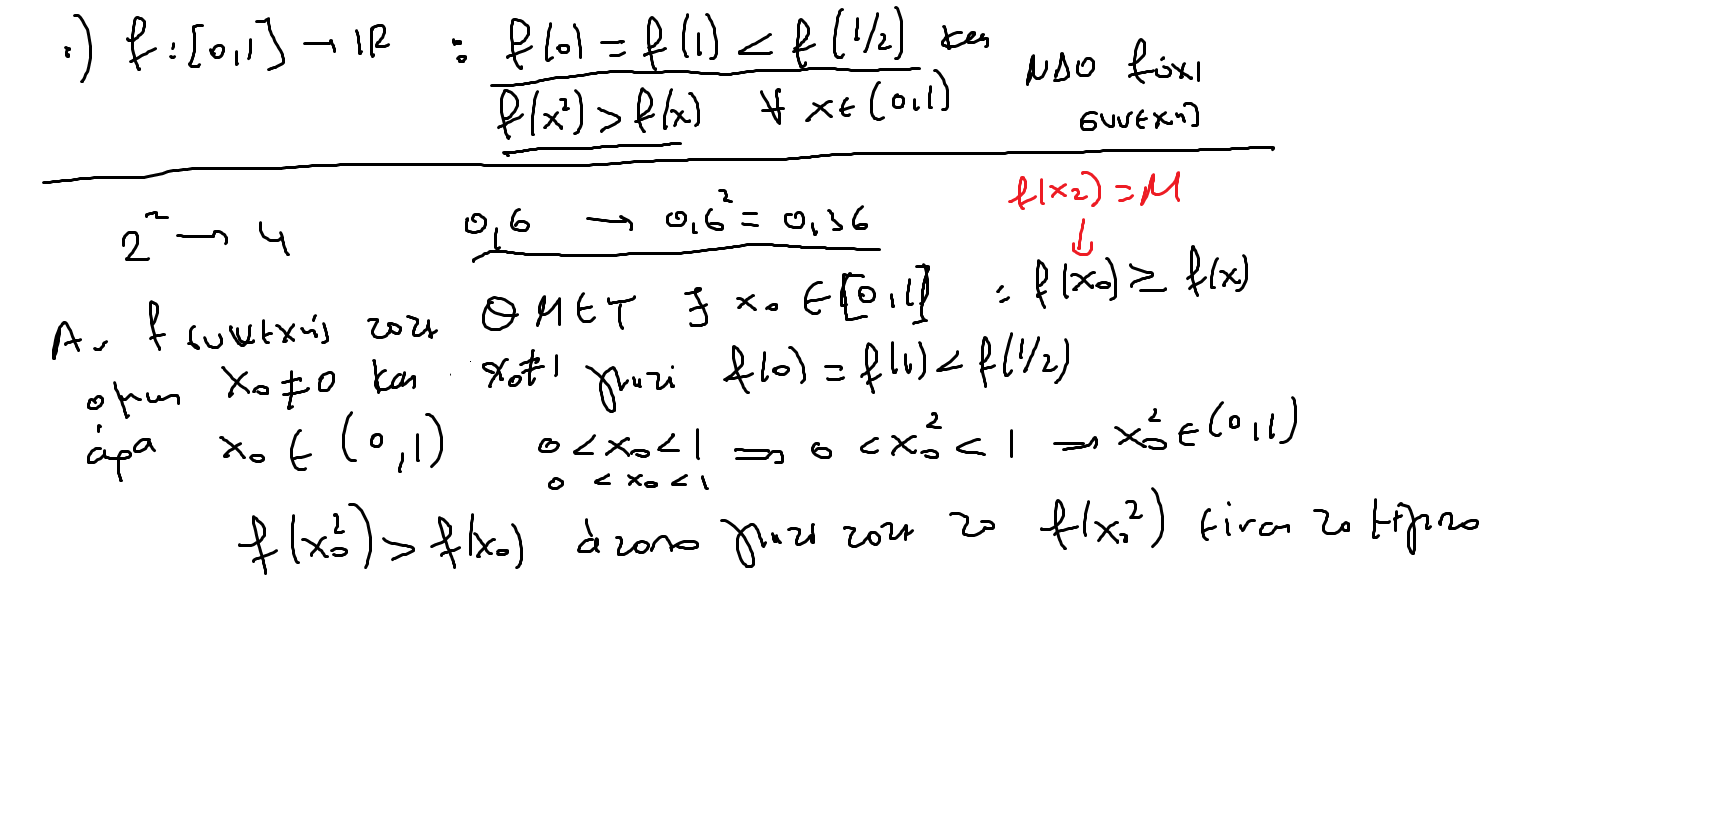 :) f:[0,1] → ℝ : f(0) = f(1) < f(1/2) και
f(x²) > f(x) ∀ x∈(0,1) ΝΔΟ f όχι
συνεχής
f(x₂) = M
↓
2² → 4 0,6 → 0,6² = 0,36
Αν f συνεχής τοτε ΘΜΕΤ ∃ x₀ ∈ [0,1] : f(x₀) ≥ f(x)
ομως x₀ ≠ 0 και x₀ ≠ 1 γιατι f(0) = f(1) < f(1/2)
άρα x₀ ∈ (0,1) 0 < x₀ < 1 ⇒ 0 < x₀² < 1 ⇒ x₀² ∈ (0,1)
0 < x₀ < 1
f(x₀²) > f(x₀) άτοπο γιατι τοτε το f(x₀²) ειναι το